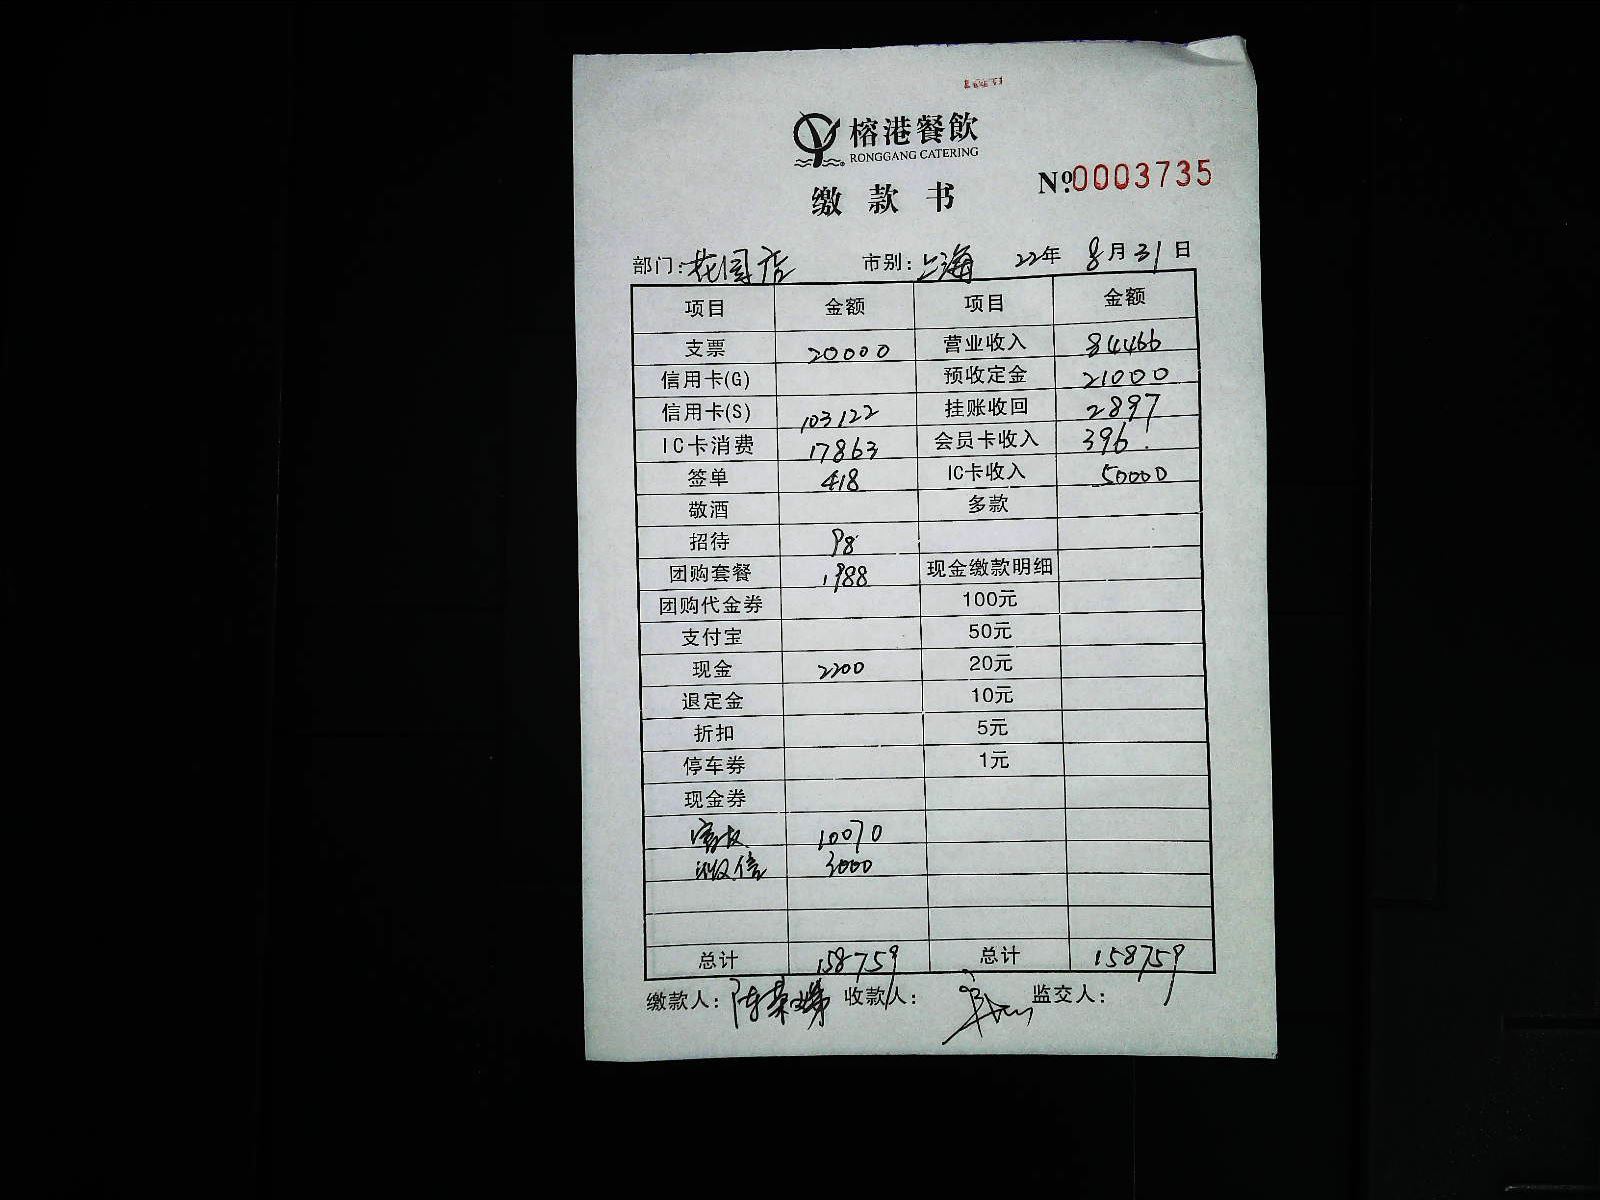 榕港餐飲
RONGGANG CATERING
缴款书
№0003735
部门:花园店 市别:上海 22年 8月31日
项目 金额 项目 金额
支票 20000 营业收入 84466
信用卡(G) 预收定金 21000
信用卡(S) 103122 挂账收回 2897
IC卡消费 17863 会员卡收入 396.
签单 418 IC卡收入 50000
敬酒 多款
招待 98
团购套餐 1988 现金缴款明细
团购代金券 100元
支付宝 50元
现金 2200 20元
退定金 10元
折扣 5元
停车券 1元
现金券
10070
微信 3000
总计 158759 总计 158759
缴款人: 陈荣娣 收款人: 监交人: